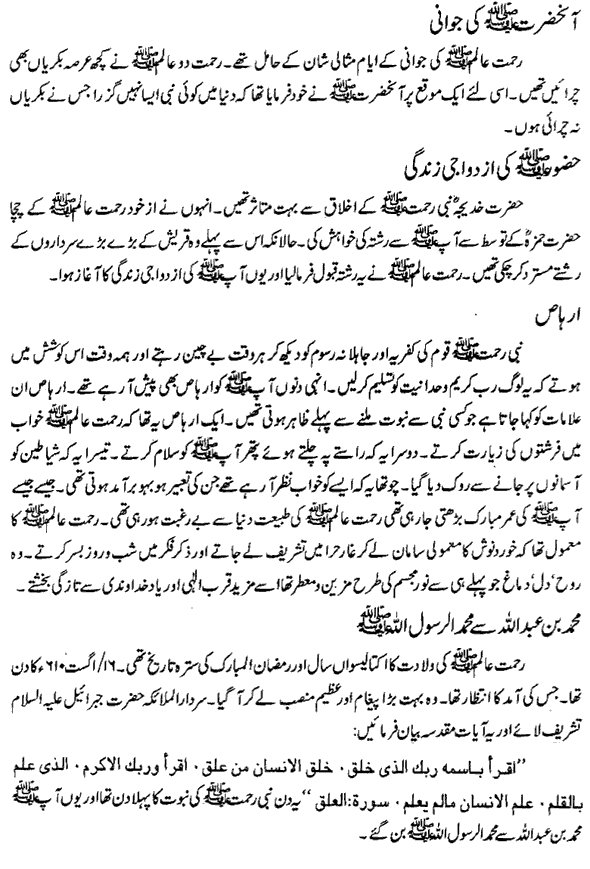 آنحضرت ﷺ کی جوانی
رحمت عالم ﷺ کی جوانی کے ایام مثالی شان کے حامل تھے۔ رحمت دو عالم ﷺ نے کچھ عرصہ بکریاں بھی
چرائیں تھیں۔ اسی لئے ایک موقع پر آنحضرت ﷺ نے خود فرمایا تھا کہ دنیا میں کوئی نبی ایسا نہیں گزرا جس نے بکریاں
نہ چرائی ہوں۔
حضور ﷺ کی ازدواجی زندگی
حضرت خدیجہؓ نبی رحمت ﷺ کے اخلاق سے بہت متاثر تھیں۔ انہوں نے از خود رحمت عالم ﷺ کے چچا
حضرت حمزہؓ کے توسط سے آپ ﷺ سے رشتہ کی خواہش کی۔ حالانکہ اس سے پہلے وہ قریش کے بڑے بڑے سرداروں کے
رشتے مسترد کر چکی تھیں۔ رحمت عالم ﷺ نے یہ رشتہ قبول فرمالیا اور یوں آپ ﷺ کی ازدواجی زندگی کا آغاز ہوا۔
ارہاص
نبی رحمت ﷺ قوم کی کفریہ اور جاہلانہ رسوم کو دیکھ کر ہر وقت بے چین رہتے اور ہمہ وقت اس کوشش میں
ہوتے کہ یہ لوگ رب کریم وحدانیت کو تسلیم کرلیں۔ انہی دنوں آپ ﷺ کو ارہاص بھی پیش آرہے تھے۔ ارہاص ان
علامات کو کہا جاتا ہے جو کسی نبی سے نبوت ملنے سے پہلے ظاہر ہوتی تھیں۔ ایک ارہاص یہ تھا کہ رحمت عالم ﷺ خواب
میں فرشتوں کی زیارت کرتے۔ دوسرا یہ کہ راستے پہ چلتے ہوئے پتھر آپ ﷺ کو سلام کرتے۔ تیسرا یہ کہ شیاطین کو
آسمانوں پر جانے سے روک دیا گیا۔ چوتھا یہ کہ ایسے کو خواب نظر آرہے تھے جن کی تعبیر ہو بہو برآمد ہوتی تھی۔ جیسے جیسے
آپ ﷺ کی عمر مبارک بڑھتی جارہی تھی رحمت عالم ﷺ کی طبیعت دنیا سے بے رغبت ہورہی تھی۔ رحمت عالم ﷺ کا
معمول تھا کہ خورد نوش کا معمولی سامان لے کر غار حرا میں تشریف لے جاتے اور ذکر فکر میں شب و روز بسر کرتے۔ وہ
روح‘ دل‘ دماغ جو پہلے ہی سے نور مجسم کی طرح مزین و معطر تھا اسے مزید قرب الٰہی اور یاد خداوندی سے تازگی بخشتے۔
محمد بن عبداللہ سے محمد الرسول اللہ ﷺ
رحمت عالم ﷺ کی ولادت کا اکتالیسواں سال اور رمضان المبارک کی سترہ تاریخ تھی۔ ۱۶/اگست ۶۱۰ء کا دن
تھا۔ جس کی آمد کا انتظار تھا۔ وہ بہت بڑا پیغام اور عظیم منصب لے کر آگیا۔ سردار الملائکہ حضرت جبرائیل علیہ السلام
تشریف لائے اور یہ آیات مقدسہ بیان فرمائیں:
’’اقرأ باسمه ربك الذى خلق۰ خلق الانسان من علق۰ اقرأ وربك الاكرم۰ الذى علم
بالقلم۰ علم الانسان مالم يعلم۰ سورة:العلق‘‘ یہ دن نبی رحمت ﷺ کی نبوت کا پہلا دن تھا اور یوں آپ ﷺ
محمد بن عبداللہ سے محمد الرسول اللہ ﷺ بن گئے۔